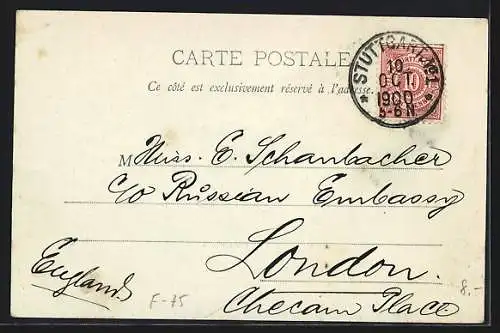 CARTE POSTALE
Ce côté est exclusivement réservé à l'adresse.
STUTTGART No 1
10
OCT.
1900
5-6 N
10
M Miss. E. Schanbacher
c/o Russian Embassy
London.
England.
Checam Place
F-75
8.-